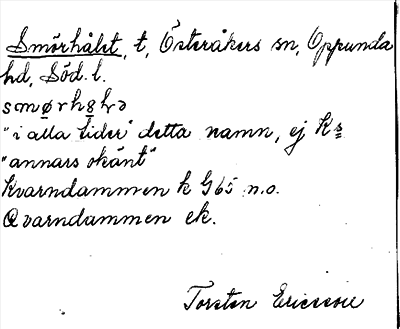 Smörhålet, t, Österåkers sn, Oppunda
hd, Söd. l.
"i alla tider" detta namn, ej K
"annars okänt"
Kvarndammen k G65 n.o.
Qvarndammen ek.
Torsten Ericsson